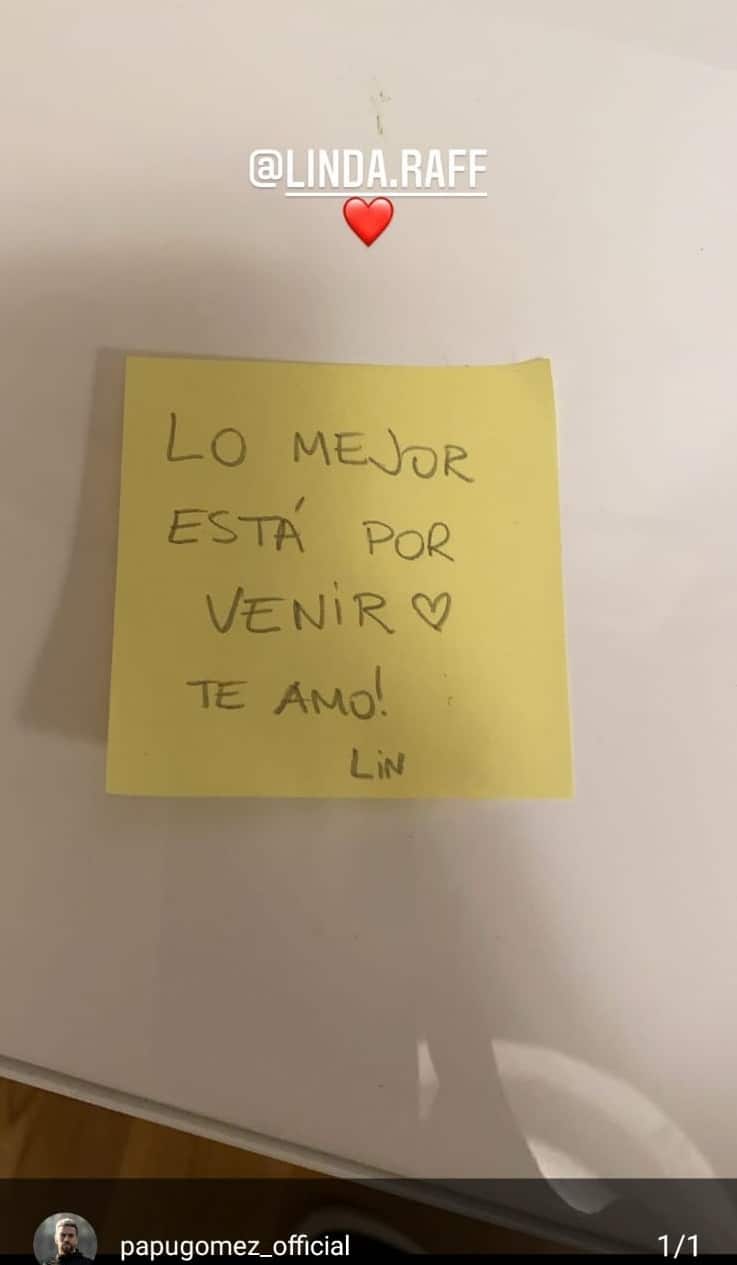 @LINDA.RAFF
LO MEJOR
ESTÁ POR
VENIR
TE AMO!
LIN
papugomez_official
1/1